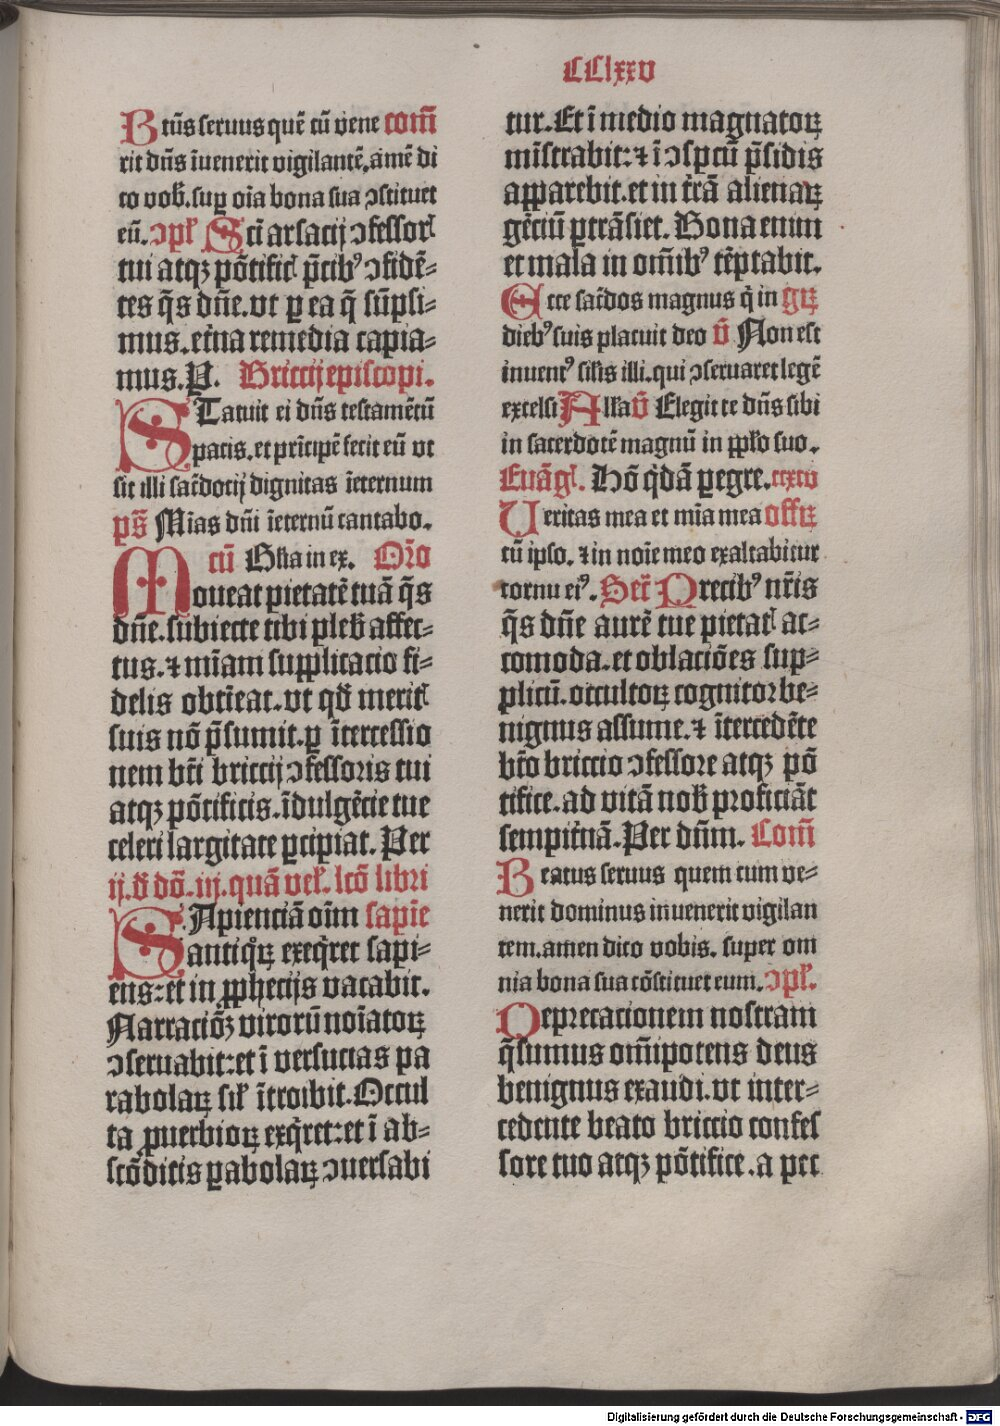 CClxxv
Btūs seruus quē cū vene com̄
rit dn̄s īuenerit vigilantē.amē di
co vob̄.suꝑ oīa bona sua ↄstituet
eū. ↄpl̄ Sci̅ arsacij ↄfessor̄
tui atqꝫ pōtific̄ p̄cibꝰ ↄfidē⸗
tes q̄s dn̄e.vt ꝑ ea q̄ sūpsi⸗
mus.et̄na remedia capia⸗
mus.P. Briccij episcopi.
STatuit ei dn̄s testamētū
pacis.et prīcipē fecit eū vt
sit illi sac̄dotij dignitas īeternum
ps̄ Mīas dn̄i īeternū cantabo.
cū Gl̄ia in ex. Or̄o
Moueat pietatē tuā q̄s
dn̄e.subiecte tibi pleb̄ affec⸗
tus.⁊ mīam supplicacio fi⸗
delis obtīeat.vt qd̄ merit̄
suis nō p̄sumit.ꝑ ītercessio
nem bt̄i briccij ↄfessoris tui
atqꝫ pōtificis.īdulgēcie tue
celeri largitate ꝑcipiat. Per
ij.d̄ dō.iij.quā vel̄. lcō libri
SApienciā oīm sapīe
antiqͦꝝ exeq̄ret sapi⸗
ens:et in ꝓphecijs vacabit.
Narraciōꝫ virorū noīatoꝝ
ↄseruabit:et ī versucias pa
rabolaꝝ sil̄ ītroibit.Occul
ta ꝓuerbioꝝ exq̄ret:et ī ab⸗
scōditis ꝑabolaꝝ ↄuersabi
tur.Et ī medio magnatoꝝ
mīstrabit:⁊ ī ↄspcū p̄sidis
apparebit.et in t̄rā alienaꝝ
gēciū ꝑtrāsiet. Bona enim
et mala in om̄ibꝰ tēptabit.
Ecce sac̄dos magnus q̄ in gꝝ
diebꝰ suis placuit deo v̄ Non est
inuentꝰ sil̄is illi.qui ↄseruaret legē
excelsi All̄a v̄ Elegit te dn̄s sibi
in sacerdotē magnū in ppl̄o suo.
Euāgl̄. Hō qͥdā ꝑegre.ccxcv
Ueritas mea et mīa mea offꝝ
cū ipso.⁊ in noīe meo exaltabitur
cornu eiꝰ. Secr̄ Precibꝰ nr̄is
q̄s dn̄e aurē tue pietat̄ ac⸗
comoda.et oblaciōes sup⸗
plicū.occultoꝝ cognitor be⸗
nignus assume.⁊ ītercedēte
bt̄o briccio ↄfessore atqꝫ pō
tifice.ad vitā nob̄ proficiāt
sempit̄nā.Per dn̄m. Com̄
Beatus seruus quem cum ve⸗
nerit dominus inuenerit vigilan
tem.amen dico vobis. super om
nia bona sua cōstituet eum.ↄpl̄.
Deprecacionem nostram
q̄sumus om̄ipotens deus
benignus exaudi.vt inter⸗
cedente beato briccio confes
sore tuo atqꝫ pōtifice.a pec
Digitalisierung gefördert durch die Deutsche Forschungsgemeinschaft - DFG